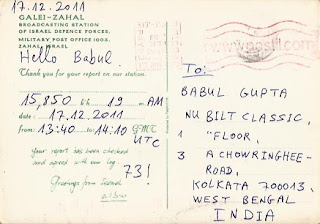 17.12.2011
GALEI-ZAHAL
BROADCASTING STATION
OF ISRAEL DEFENCE FORCES
MILITARY POST OFFICE 01005
ZAHAL, ISRAEL
Hello Babul.
Thank you for your report on our station.
15,850 kHz 19 m AM
date: 17.12.2011
from: 13:40 - to: 14:10 GMT
UTC
Your report has been checked
and agreed with our log.
73!
Greetings from Israel
www.postil.com
To:
BABUL GUPTA
NU BILT CLASSIC,
1 "FLOOR,
3 A CHOWRINGHEE-
ROAD,
KOLKATA 700013.
WEST BENGAL
INDIA